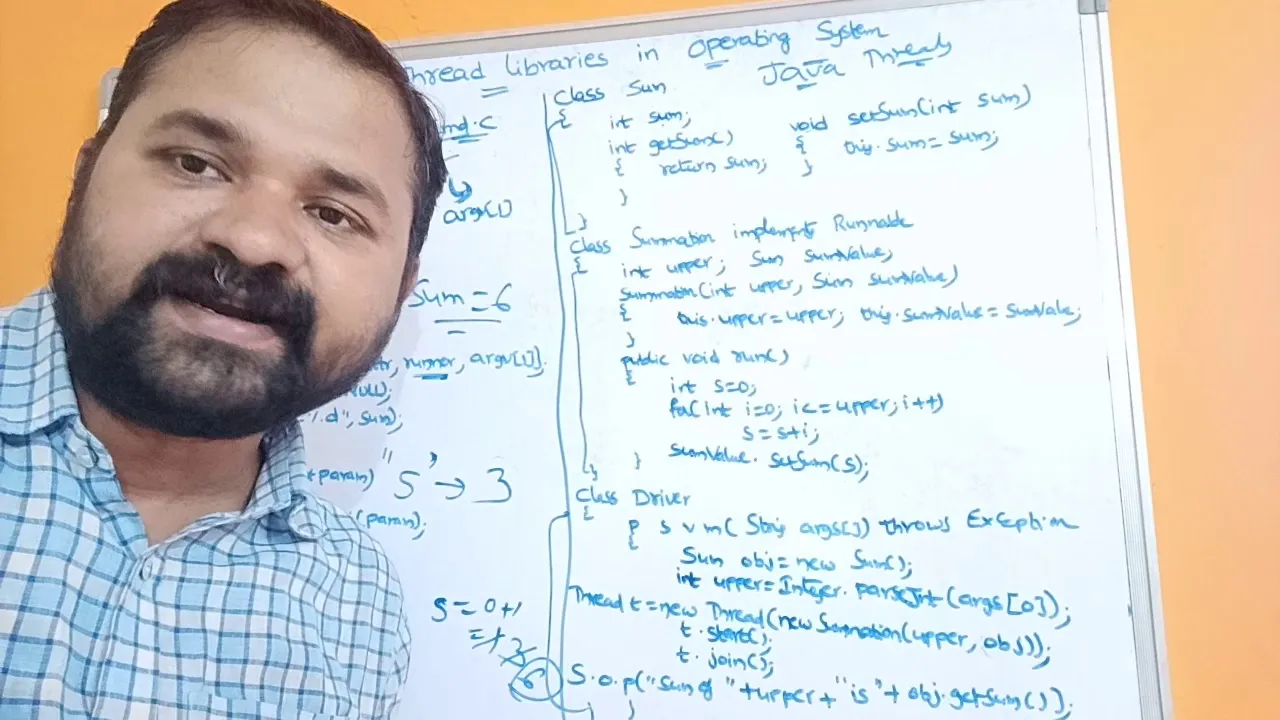 Thread Libraries in Operating System
Java Threads
md.c
argv[1]
sum = 6
tr, runner, argv[1]).
NULL);
"%.d", sum);
* param)
"5" → 3
(param);
s = 0+1
= 1 3
6
Class Sum
{
int sum;
int getSum()
{ return sum;
}
void setSum(int sum)
{ this.sum = sum;
}
}
Class Summation implements Runnable
{
int upper; Sum sumValue;
Summation(int upper, Sum sumValue)
{ this.upper = upper; this.sumValue = sumValue;
}
public void run()
{
int s=0;
for(int i=0; i<=upper; i++)
s = s+i;
sumValue.setSum(s);
}
}
Class Driver
{
P S V m( String args[]) throws Exception
{
Sum obj = new Sum();
int upper = Integer.parseInt(args[0]);
Thread t = new Thread(new Summation(upper, obj));
t.start();
t.join();
S.o.p("sum of "+upper+"is"+ obj.getSum());
} }